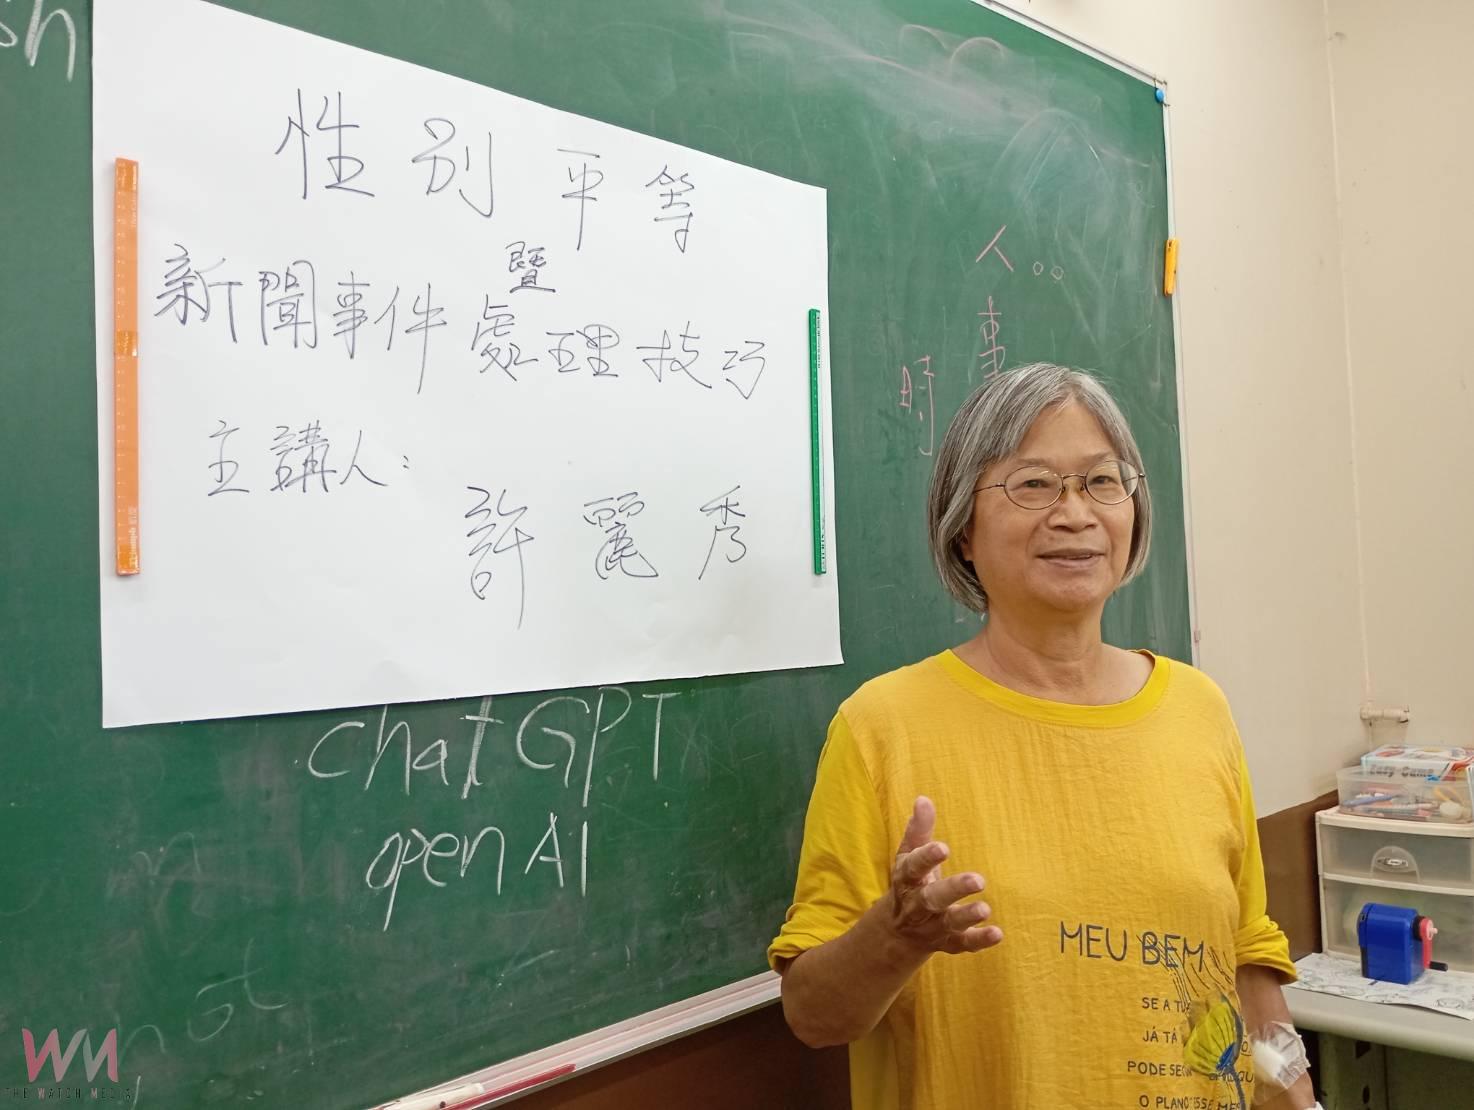 性別平等
暨
新聞事件處理技巧
主講人：
許麗秀
chatGPT
open AI
人。。
事
時
MEU BEM
SE A TU
JÁ TÁ
PODE SE
O PLANO
WM
THE WATCH MEDIA